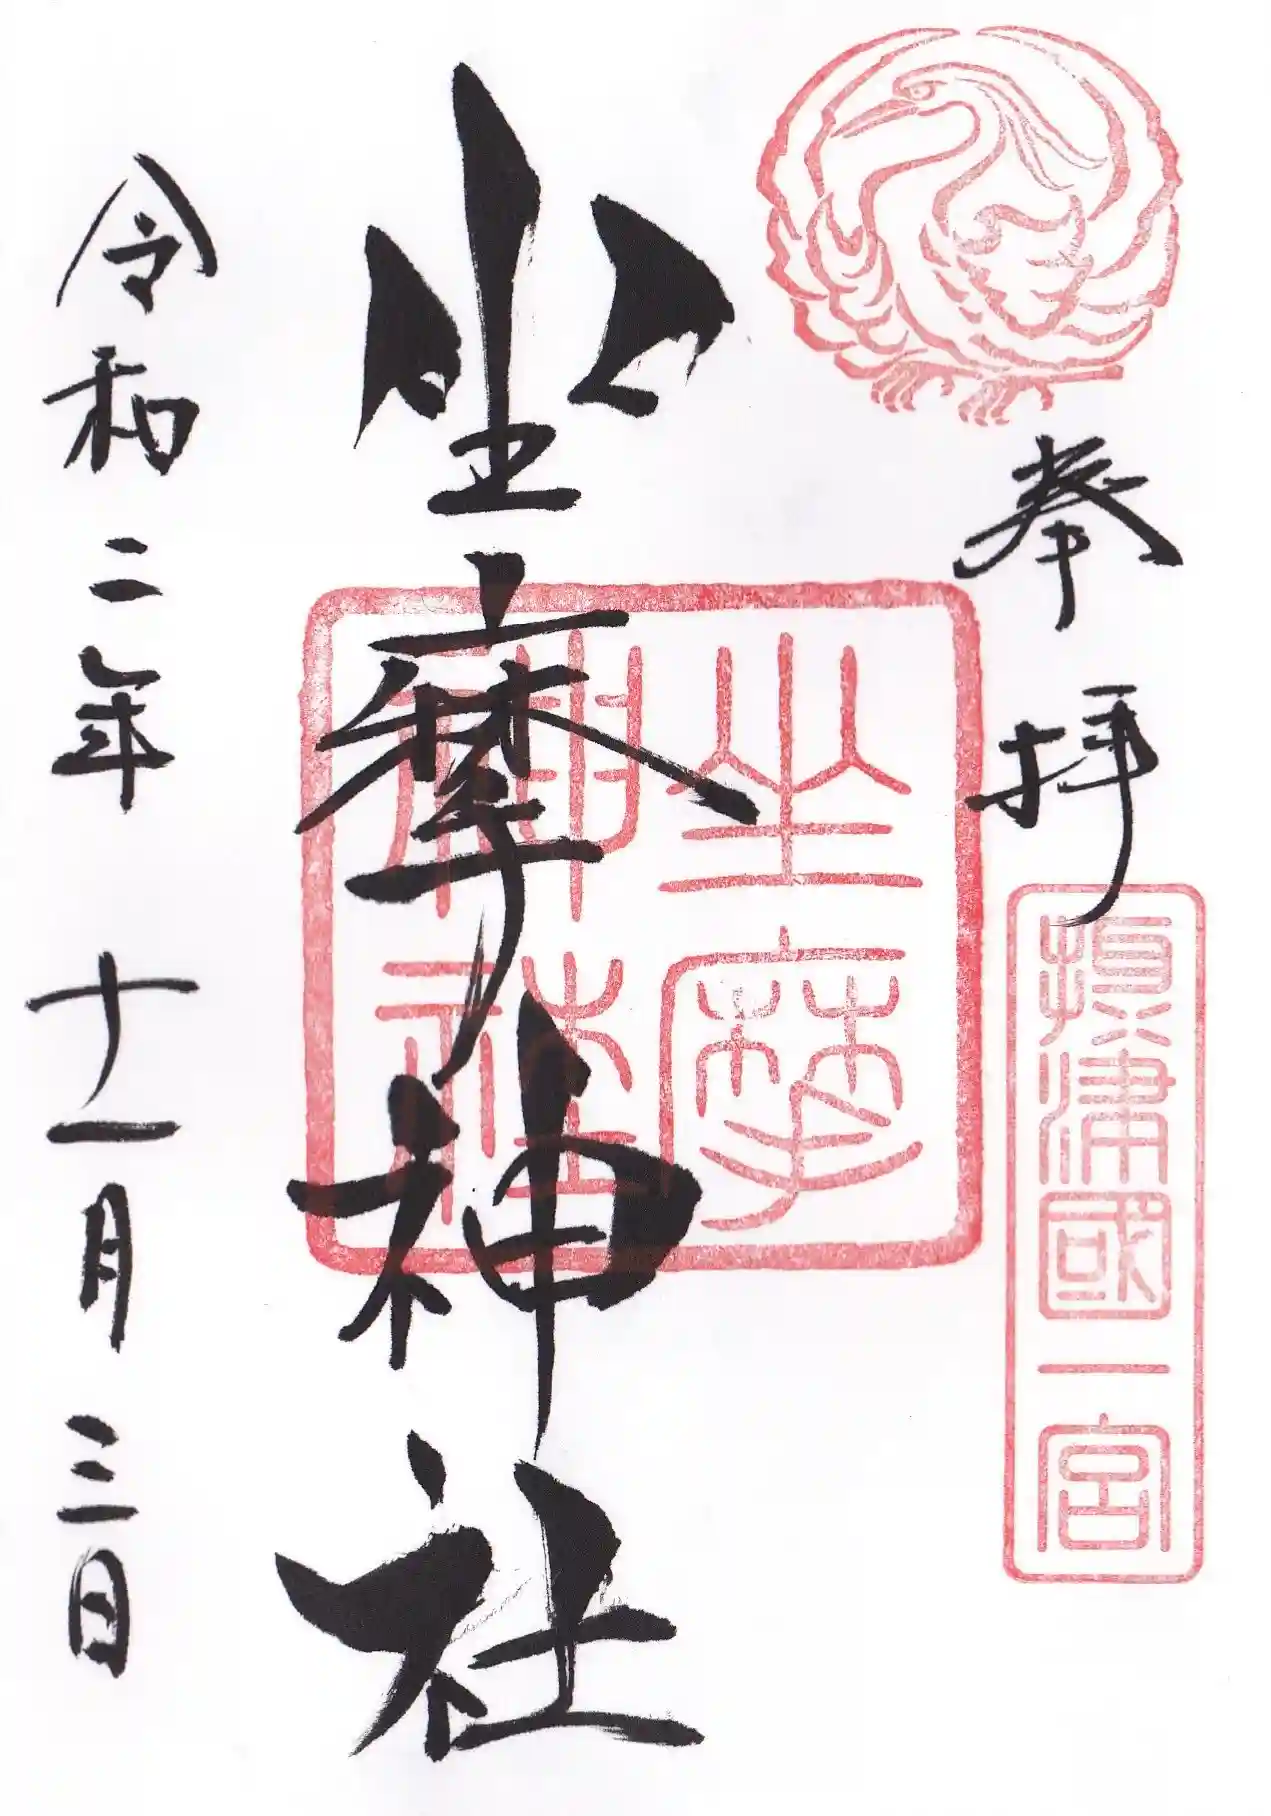 奉拝
摂津國一宮
坐摩神社
坐摩神社
令和二年十一月三日